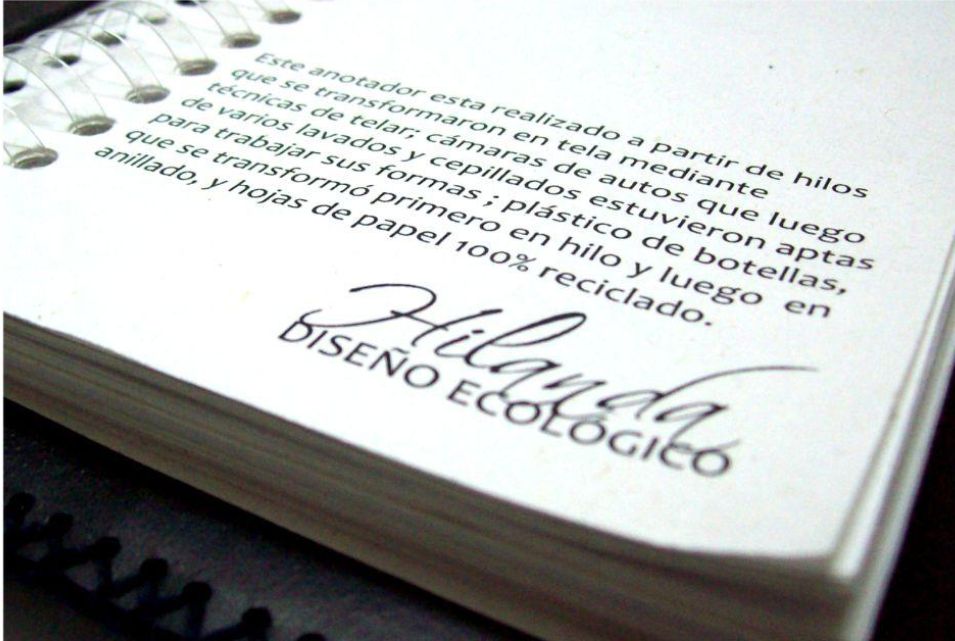 Este anotador esta realizado a partir de hilos
que se transformaron en tela mediante
técnicas de telar; cámaras de autos que luego
de varios lavados y cepillados estuvieron aptas
para trabajar sus formas ; plástico de botellas,
que se transformó primero en hilo y luego en
anillado, y hojas de papel 100% reciclado.
Hilanda
DISEÑO ECOLÓGICO